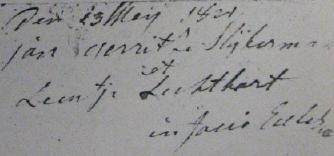 Den 23 Mey 1821
jan Gerrit Slijkerm
et
Leentje Lichthart
in facie Eccles